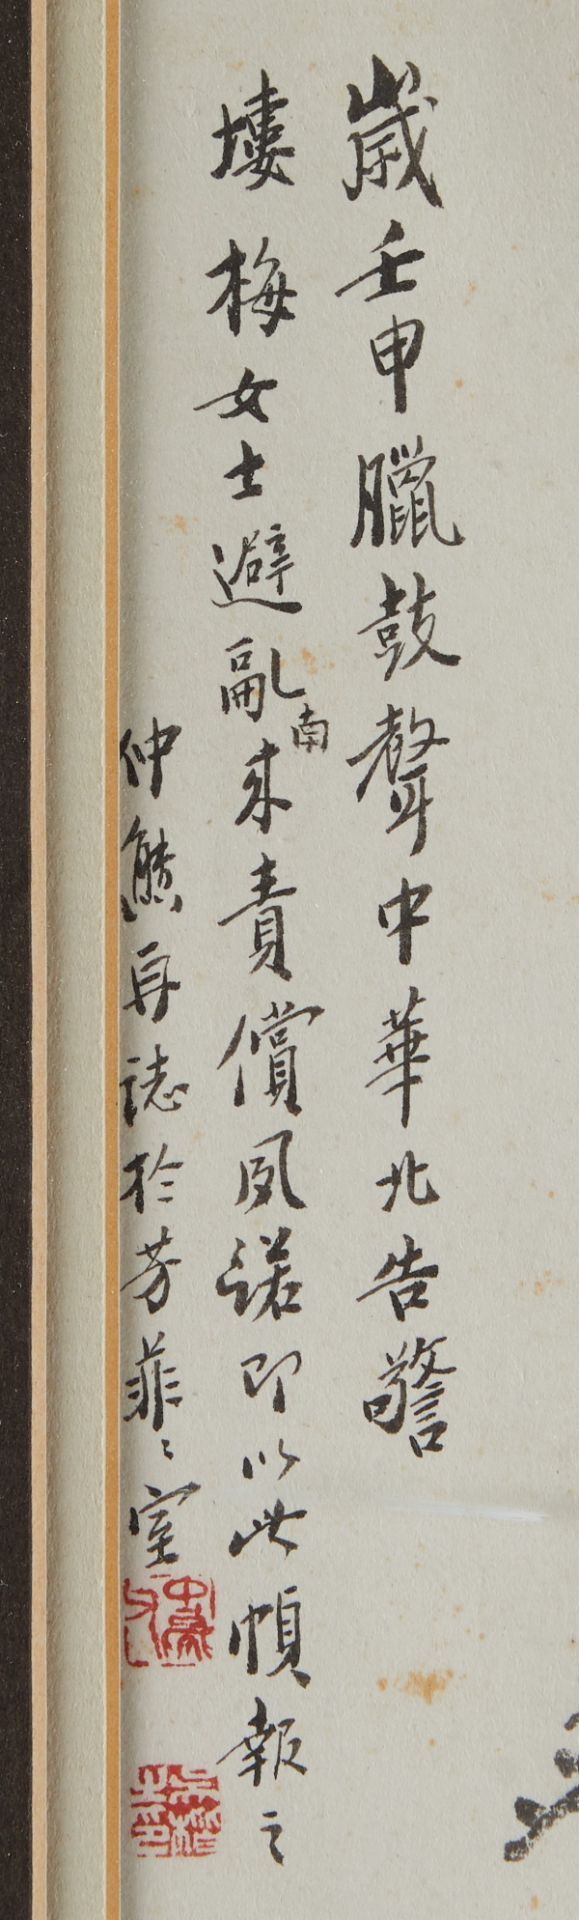 歲壬申臘鼓聲中華北告警
塿梅女士避亂南來責償夙諾即以此幀報之
仲熊再誌於芳菲菲室